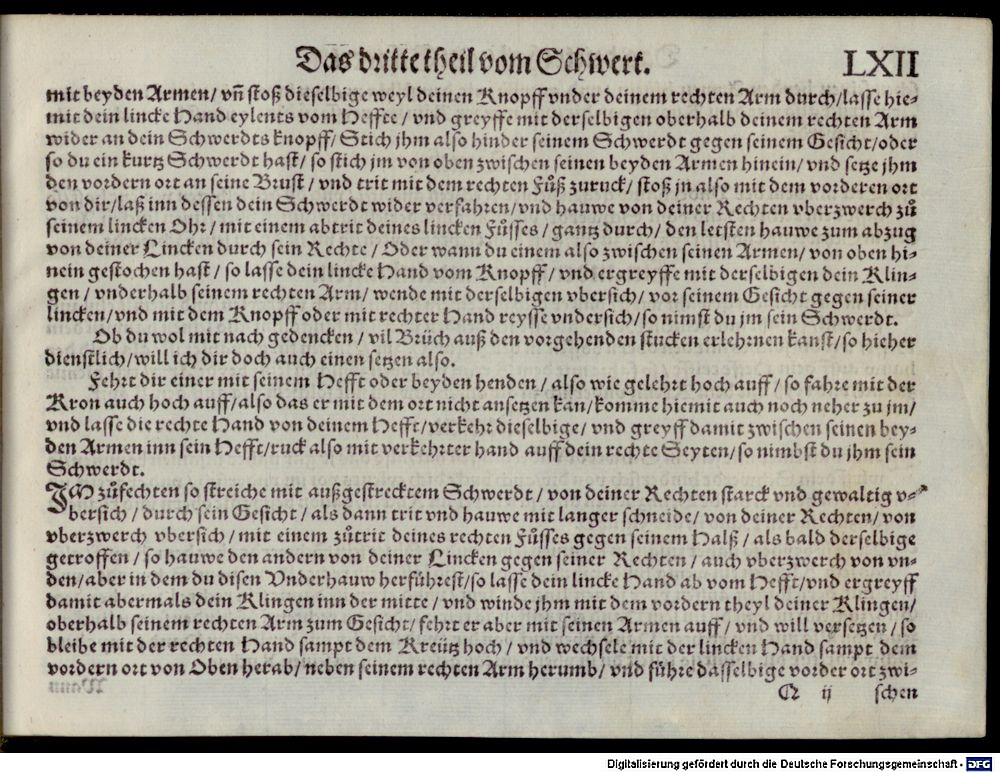 Das dritte theil vom Schwert. LXII
mit beyden Armen/ vñ stoß dieselbige weyl deinen Knopff vnder deinem rechten Arm durch/lasse hie-
mit dein lincke Hand eylents vom Heffte/ vnd greyffe mit derselbigen oberhalb deinem rechten Arm
wider an dein Schwerdts knopff/ Stich jhm also hinder seinem Schwerdt gegen seinem Gesicht/oder
so du ein kurtz Schwerdt hast/ so stich jm von oben zwischen seinen beyden Armen hinein/ vnd setze jhm
den vordern ort an seine Brust/ vnd trit mit dem rechten Fůß zuruck/ stoß jn also mit dem vorderen ort
von dir/laß inn dessen dein Schwerdt wider verfahren/vnd hauwe von deiner Rechten vberzwerch zů
seinem lincken Ohr/ mit einem abtrit deines lincken Fůsses/ gantz durch/ den letsten hauwe zum abzug
von deiner Lincken durch sein Rechte/ Oder wann du einem also zwischen seinen Armen/ von oben hi-
nein gestochen hast/ so lasse dein lincke Hand vom Knopff/ vnd ergreyffe mit derselbigen dein Klin-
gen/ vnderhalb seinem rechten Arm/ wende mit derselbigen vbersich/ vor seinem Gesicht gegen seiner
lincken/vnd mit dem Knopff oder mit rechter Hand reysse vndersich/so nimst du jm sein Schwerdt.
Ob du wol mit nach gedencken/ vil Brüch auß den vorgehenden stucken erlehrnen kanst/so hieher
dienstlich/will ich dir doch auch einen setzen also.
Fehrt dir einer mit seinem Hefft oder beyden henden/ also wie gelehrt hoch auff/ so fahre mit der
Kron auch hoch auff/also das er mit dem ort nicht ansetzen kan/komme hiemit auch noch neher zu jm/
vnd lasse die rechte Hand von deinem Hefft/verkehr dieselbige/ vnd greyff damit zwischen seinen bey-
den Armen inn sein Hefft/ruck also mit verkehrter hand auff dein rechte Seyten/so nimbst du jhm sein
Schwerdt.
IM zůfechten so streiche mit außgestrecktem Schwerdt/ von deiner Rechten starck vnd gewaltig v-
bersich/ durch sein Gesicht/ als dann trit vnd hauwe mit langer schneide/ von deiner Rechten/ von
vberzwerch vbersich/ mit einem zůtrit deines rechten Fůsses gegen seinem Halß/ als bald derselbige
getroffen/ so hauwe den andern von deiner Lincken gegen seiner Rechten/ auch vberzwerch von vn-
den/aber in dem du disen Vnderhauw herführest/so lasse dein lincke Hand ab vom Hefft/vnd ergreyff
damit abermals dein Klingen inn der mitte/ vnd winde jhm mit dem vordern theyl deiner Klingen/
oberhalb seinem rechten Arm zum Gesicht/ fehrt er aber mit seinen Armen auff/ vnd will versetzen/ so
bleibe mit der rechten Hand sampt dem Kreütz hoch/ vnd wechsele mit der lincken Hand sampt dem
vordern ort von Oben herab/ neben seinem rechten Arm herumb/ vnd führe dasselbige vorder ort zwi-
Q ij schen
Digitalisierung gefördert durch die Deutsche Forschungsgemeinschaft - DFG